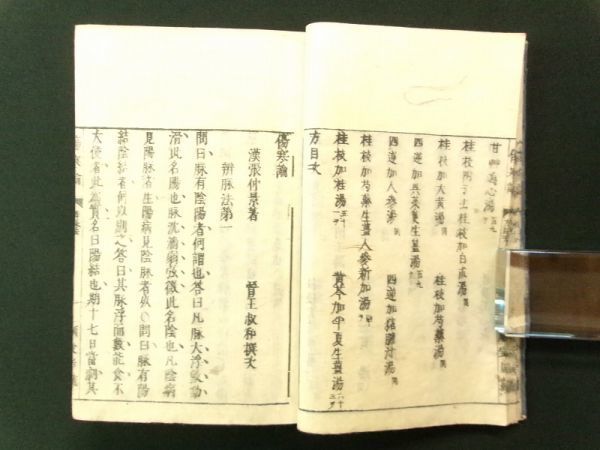 甘艸瀉心湯
桂枝附子去桂枝加白朮湯
桂枝加大黄湯 桂枝加芍藥湯
四逆加呉茱萸生薑湯
四逆加人參湯 四逆加猪膽汁湯
桂枝加芍藥生薑人參新加湯
桂枝加桂湯 黄芩加半夏生薑湯
方目次
傷寒論
漢張仲景著 晉王叔和撰次
辨脉法第一
問曰脉有陰陽者何謂也荅曰凡脉大浮數動
滑此名陽也脉沈濇弱弦微此名陰也凡陰病
見陽脉者生陽病見陰脉者死〇問曰脉有陽
結陰結者何以別之荅曰其脉浮而數能食不
大便者此為實名曰陽結也期十七日當劇其